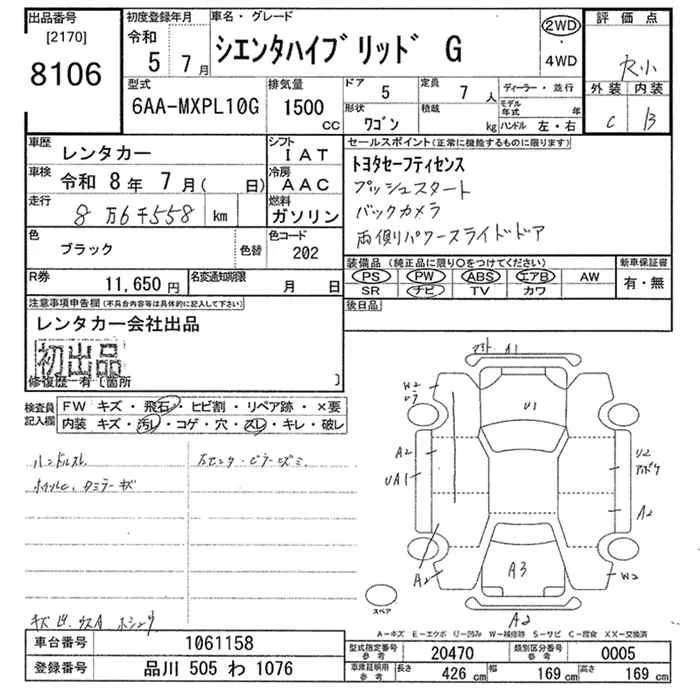 出品番号
[2170]
8106
初度登録年月
令和
5 7月
車名・グレード
シエンタハイブリッド G
2WD
・
4WD
評価点
外装 内装
C B
型式
6AA-MXPL10G
排気量
1500
CC
ドア
5
定員
7 人
形状
ワゴン
積載
kg
ディーラー・並行
モデル年式 年
ハンドル 左・右
車歴
レンタカー
シフト
IAT
車検
令和 8年 7月( 日)
冷房
AAC
走行
8万6千558 km
燃料
ガソリン
色
ブラック
色替
色コード
202
R券
11,650 円
名変通知期限
月 日
セールスポイント(正常に機能するものに限ります)
トヨタセーフティセンス
プッシュスタート
バックカメラ
両側パワースライドドア
装備品(純正品に限り○をつけてください)
PS PW ABS エアB AW
SR ナビ TV カワ
新車保証書
有・無
後日品
注意事項申告欄(不具合内容等は具体的に記入して下さい)
レンタカー会社出品
初出品
修復歴-有〔箇所 〕
検査員記入欄
FW キズ・飛石・ヒビ割・リペア跡・×要
内装 キズ・汚レ・コゲ・穴・スレ・キレ・破レ
ハンドルスレ
A1
W2
U1
A2
UA1
U2
A2
A2
A3
W2
A2
スペア
A-キズ E-エクボ U-凹み W-補修跡 S-サビ C-腐食 XX-交換済
車台番号
1061158
登録番号
品川 505 わ 1076
型式指定番号
参考
20470
類別区分番号
参考
0005
車庫証明用
参考
長さ
426 cm
幅
169 cm
高さ
169 cm